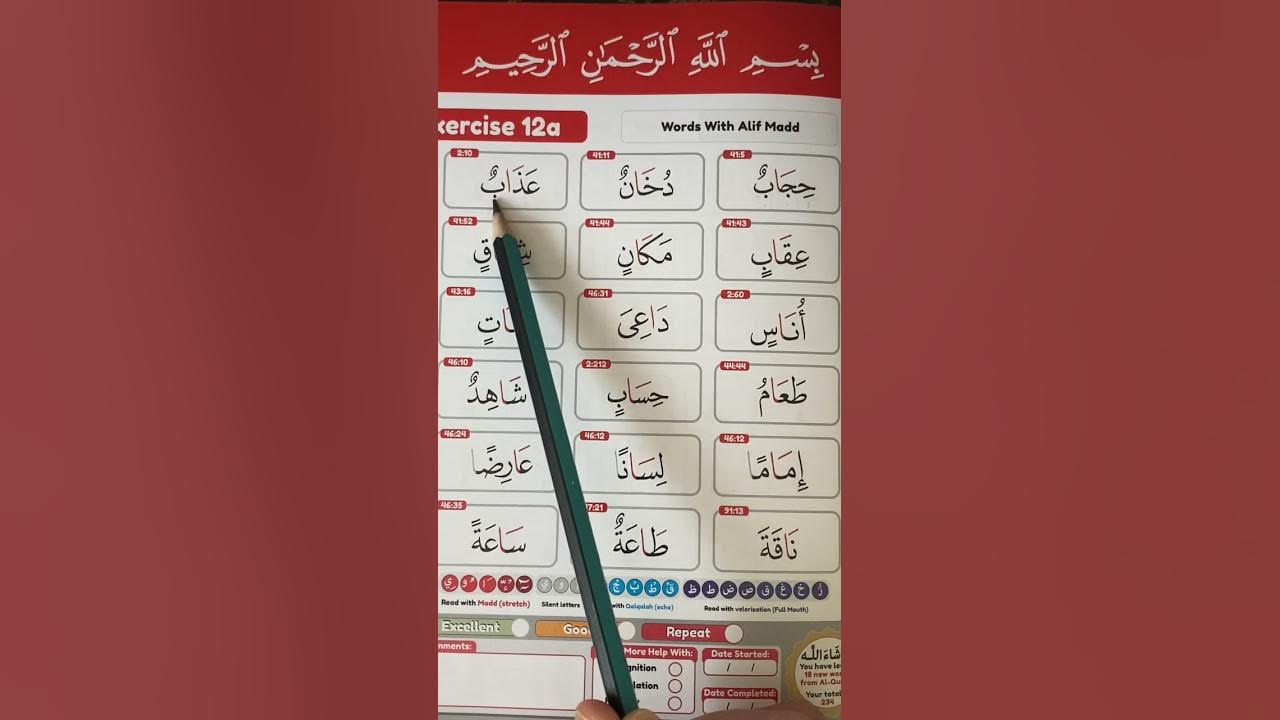 بِسْمِ ٱللَّهِ ٱلرَّحْمَٰنِ ٱلرَّحِيمِ
xercise 12a
Words With Alif Madd
41:5 41:11 2:10
حِجَابٌ دُخَانٌ عَذَابٌ
41:43 41:44 41:52
عِقَابٍ مَكَانٍ
2:60 46:31 43:16
أُنَاسٍ دَاعِىَ
44:44 2:212 46:10
طَعَامُ حِسَابٍ شَاهِدٌ
46:12 46:12 46:24
إِمَامًا لِسَانًا عَارِضًا
91:13 7:21 46:35
نَاقَةَ طَاعَةٌ سَاعَةً
Read with Madd (stretch) Silent letters with Qalqalah (echo) Read with velerisation (Full Mouth)
Excellent Goo Repeat
mments:
More Help With:
gnition
lation
Date Started:
/ /
Date Completed:
/ /
شَاءَ اللَّه
You have le
18 new wo
from Al-Qu
Your total
234